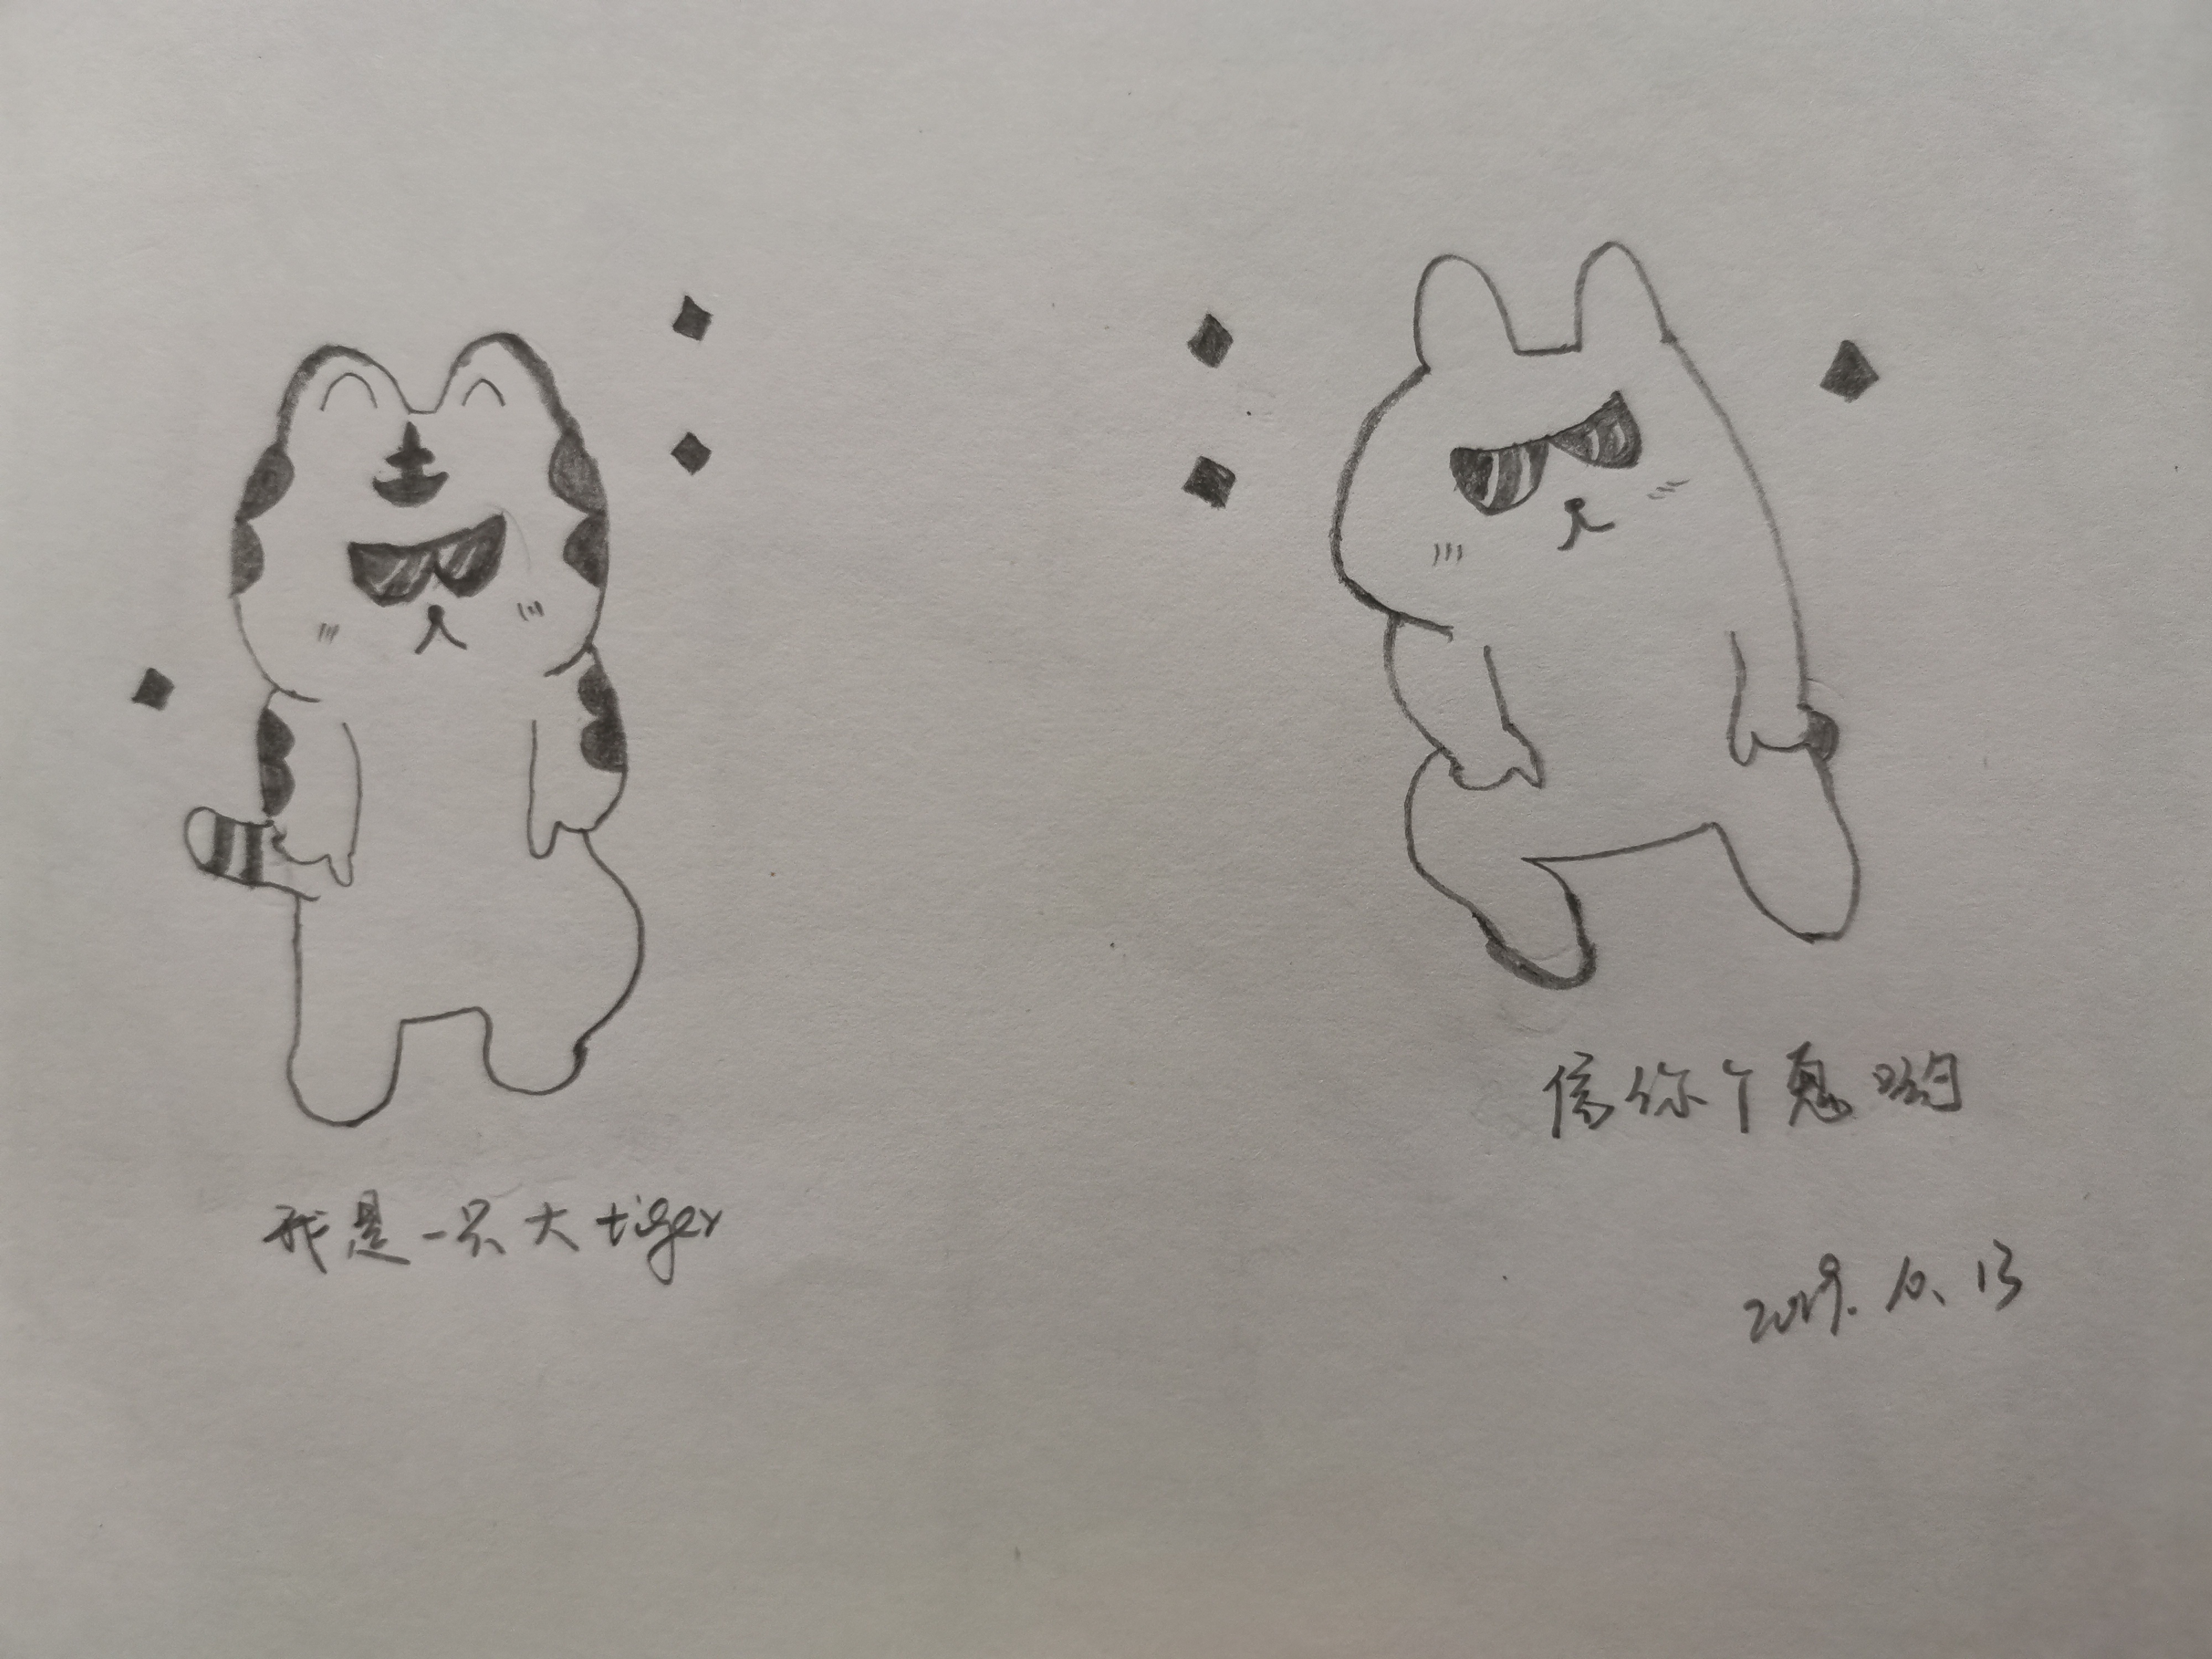 我是一只大tiger
信你个鬼哟
2019.10.13